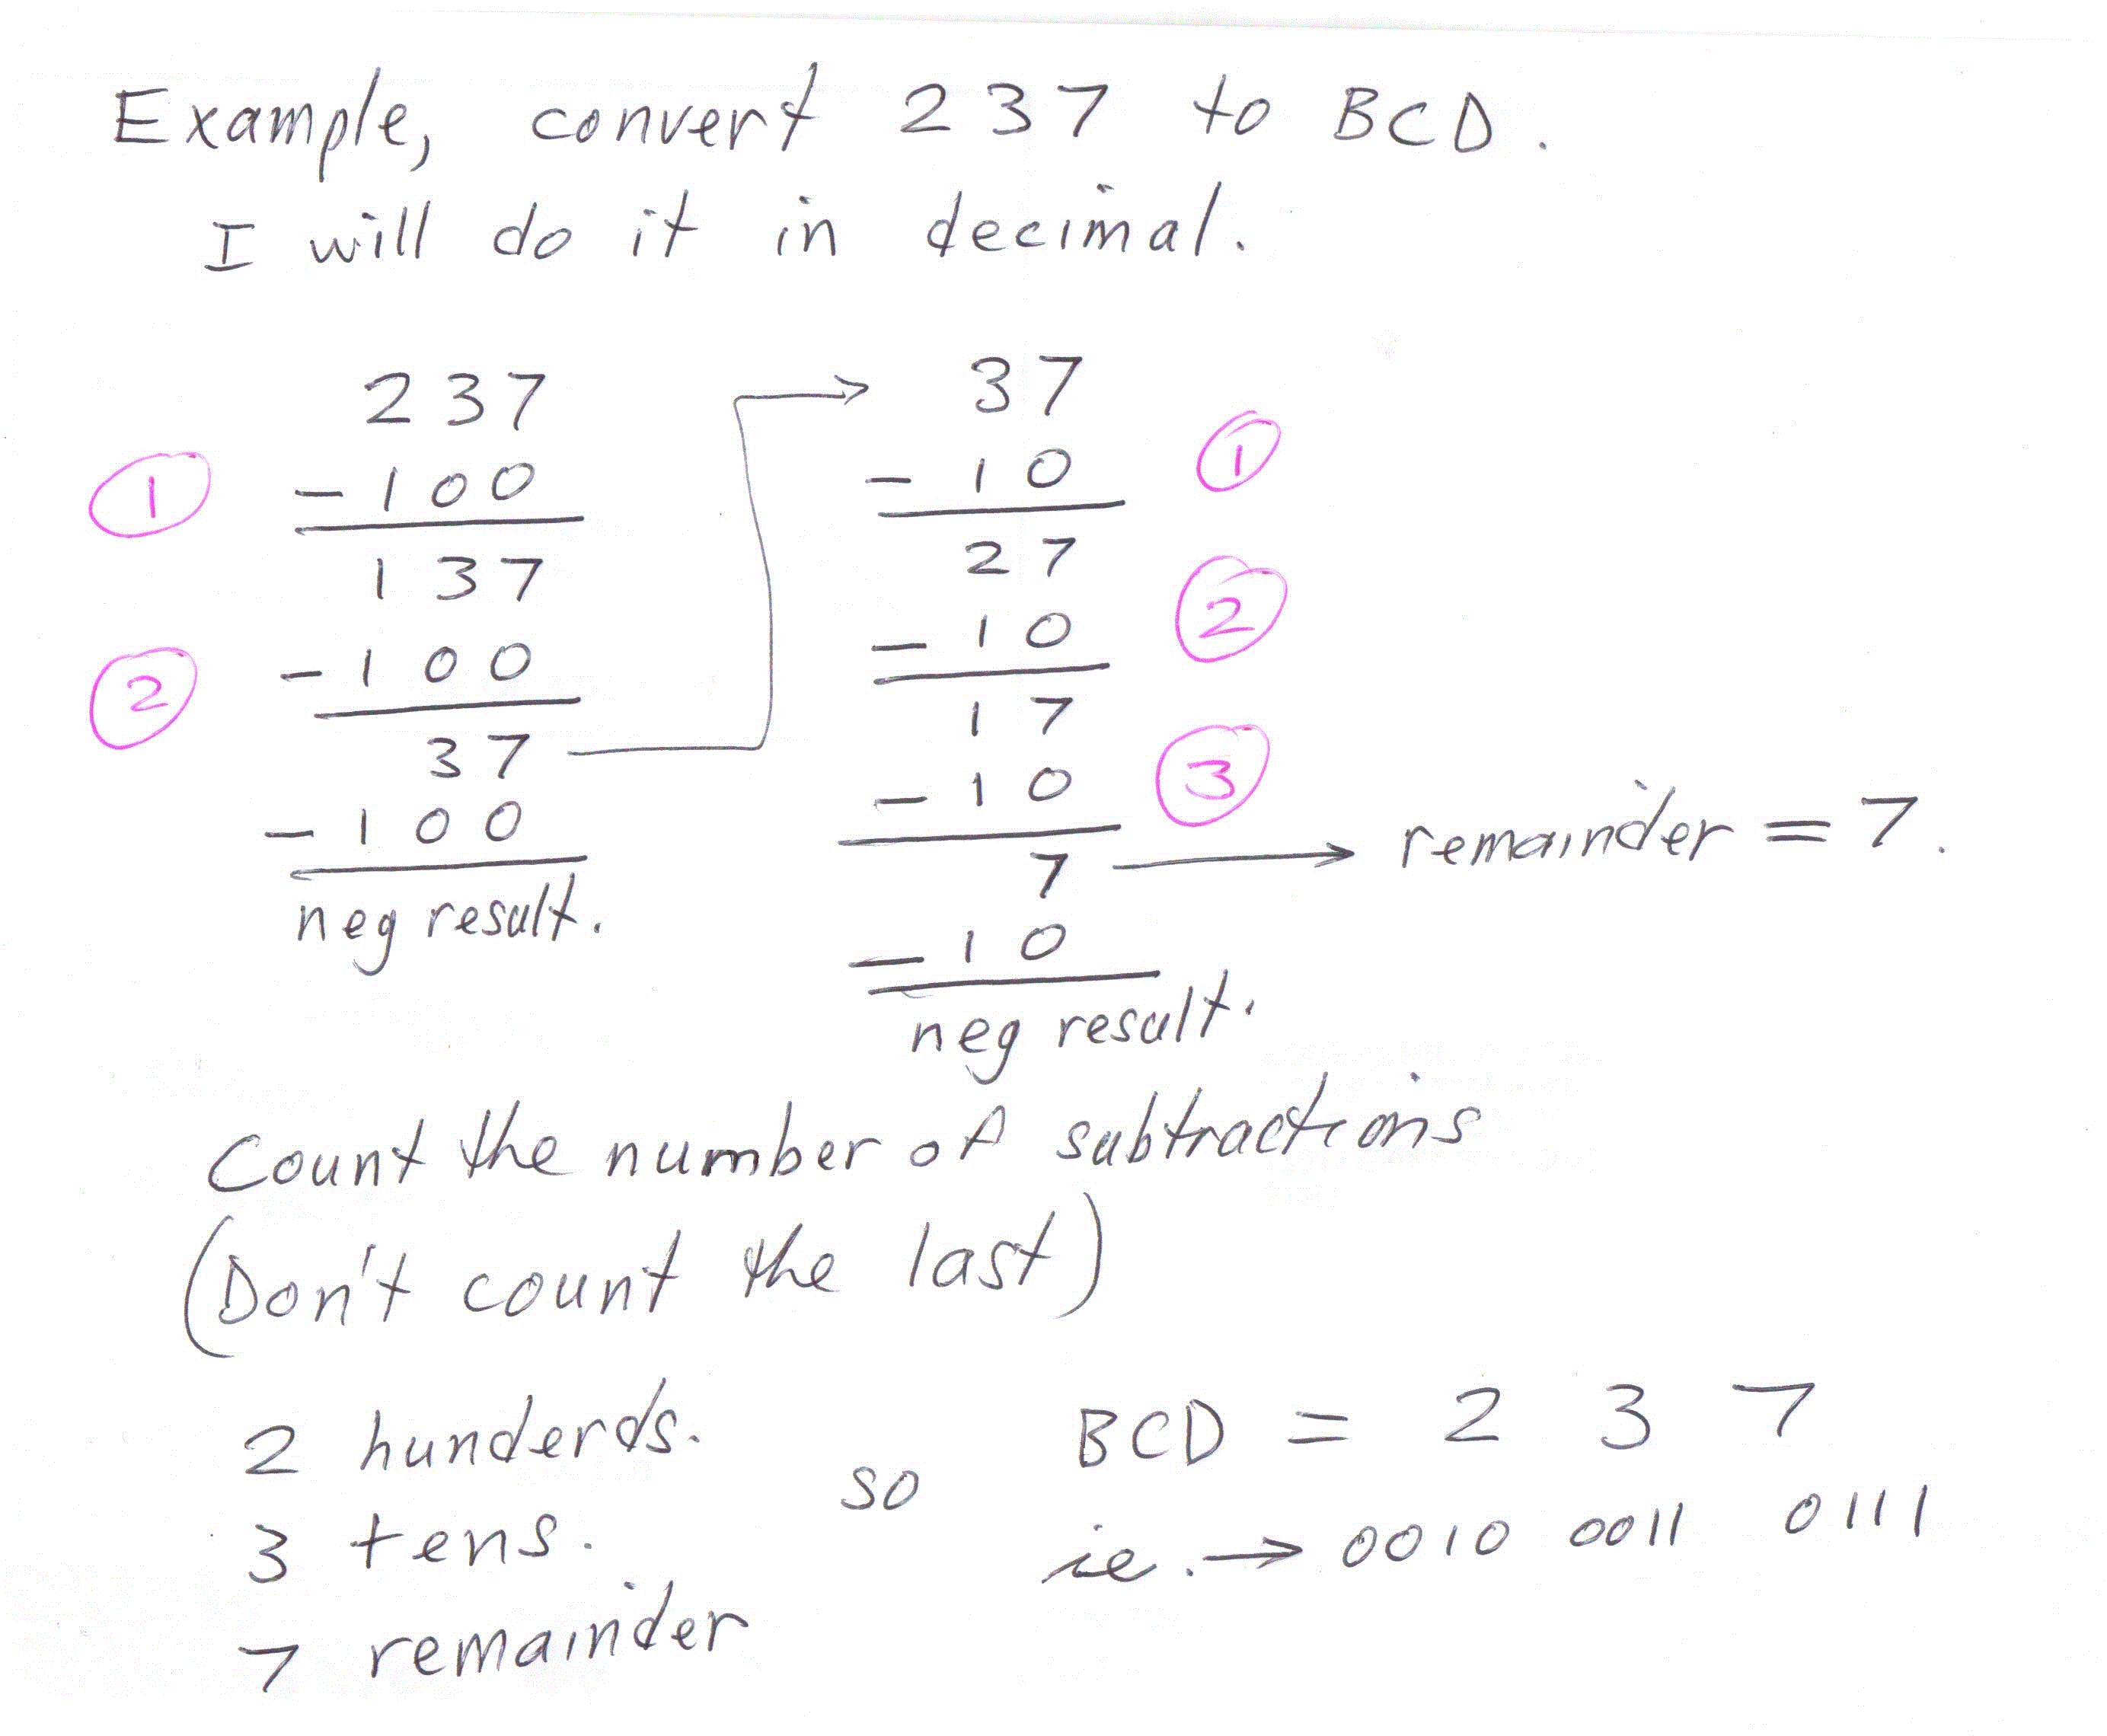 Example, convert 237 to BCD.
I will do it in decimal.
237
① -100
137
② -100
37
-100
neg result.
37
-10 ①
27
-10 ②
17
-10 ③
7 → remainder = 7.
-10
neg result.
Count the number of subtractions
(Don't count the last)
2 hunderds.
3 tens.
7 remainder
so
BCD = 2 3 7
ie. → 0010 0011 0111